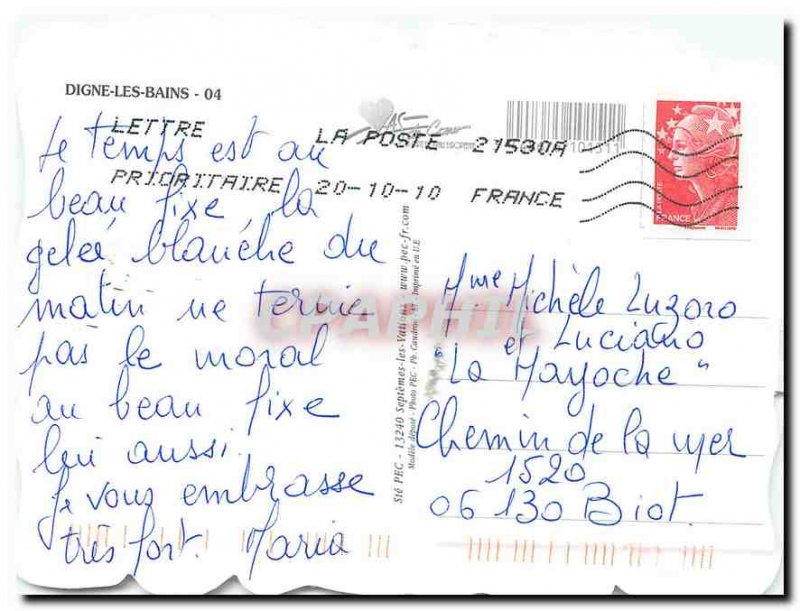 DIGNE-LES-BAINS - 04
LETTRE LA POSTE 21530A
PRIORITAIRE 20-10-10 FRANCE
Le temps est au
beau fixe, la
gelée blanche du
matin ne ternie
pas le moral
au beau fixe
lui aussi.
Je vous embrasse
très fort. Maria
Sté PEC - 13240 Septèmes-les-Vallons www.pec-fr.com
Modèle déposé - Photo PEC - Ph. Imprimé en U.E
FRANCE
CPAPHIL
Mme Michèle Luzoro
et Luciano
"La Mayoche"
Chemin de la mer
1520
06130 Biot.